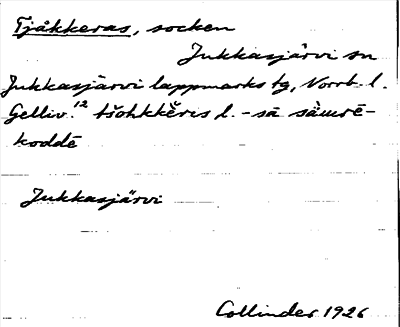 Tjåkkeras, socken
Jukkasjärvi sn
Jukkasjärvi lappmarks tg, Norrb. l.
Gelliv. 12 tšohkkĕris l. -sā sämrē-
koddē
Jukkasjärvi
Collinder 1926